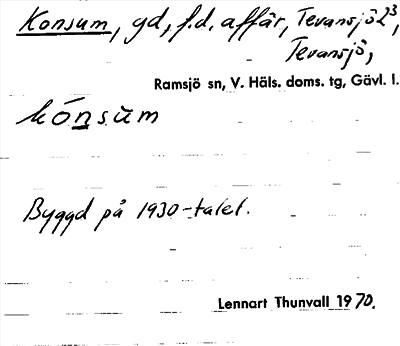 Konsum, gd, f.d. affär, Tevansjö 2³,
Tevansjö,
Ramsjö sn, V. Häls. doms. tg, Gävl. l.
kónsùm
Byggd på 1930-talet.
Lennart Thunvall 1970.